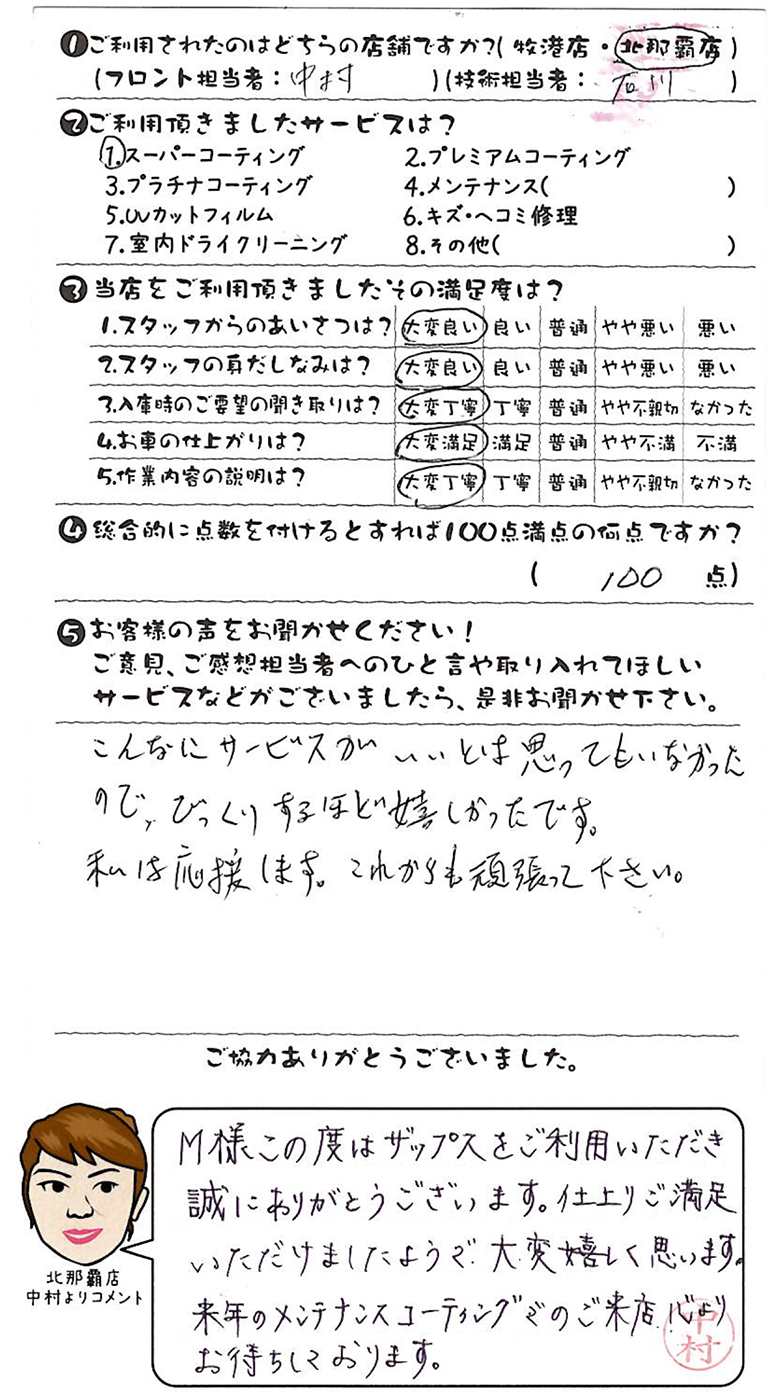 ❶ご利用されたのはどちらの店舗ですか?(牧港店・北那覇店)
(フロント担当者：中村)(技術担当者：石川)
❷ご利用頂きましたサービスは？
1.スーパーコーティング 2.プレミアムコーティング
3.プラチナコーティング 4.メンテナンス( )
5.UVカットフィルム 6.キズ・ヘコミ修理
7.室内ドライクリーニング 8.その他( )
❸当店をご利用頂きましたその満足度は？
1.スタッフからのあいさつは？ 大変良い 良い 普通 やや悪い 悪い
2.スタッフの身だしなみは？ 大変良い 良い 普通 やや悪い 悪い
3.入庫時のご要望の聞き取りは？ 大変丁寧 丁寧 普通 やや不親切 なかった
4.お車の仕上がりは？ 大変満足 満足 普通 やや不満 不満
5.作業内容の説明は？ 大変丁寧 丁寧 普通 やや不親切 なかった
❹総合的に点数を付けるとすれば100点満点の何点ですか？
( 100 点)
❺お客様の声をお聞かせください！
ご意見、ご感想担当者へのひと言や取り入れてほしい
サービスなどがございましたら、是非お聞かせ下さい。
こんなにサービスがいいとは思ってもいなかった
ので、びっくりするほど嬉しかったです。
私は応援します。これからも頑張って下さい。
ご協力ありがとうございました。
M様この度はザップスをご利用いただき
誠にありがとうございます。仕上りご満足
いただけましたようで大変嬉しく思います。
来年のメンテナンスコーティングでのご来店心より
お待ちしております。
中村
北那覇店
中村よりコメント